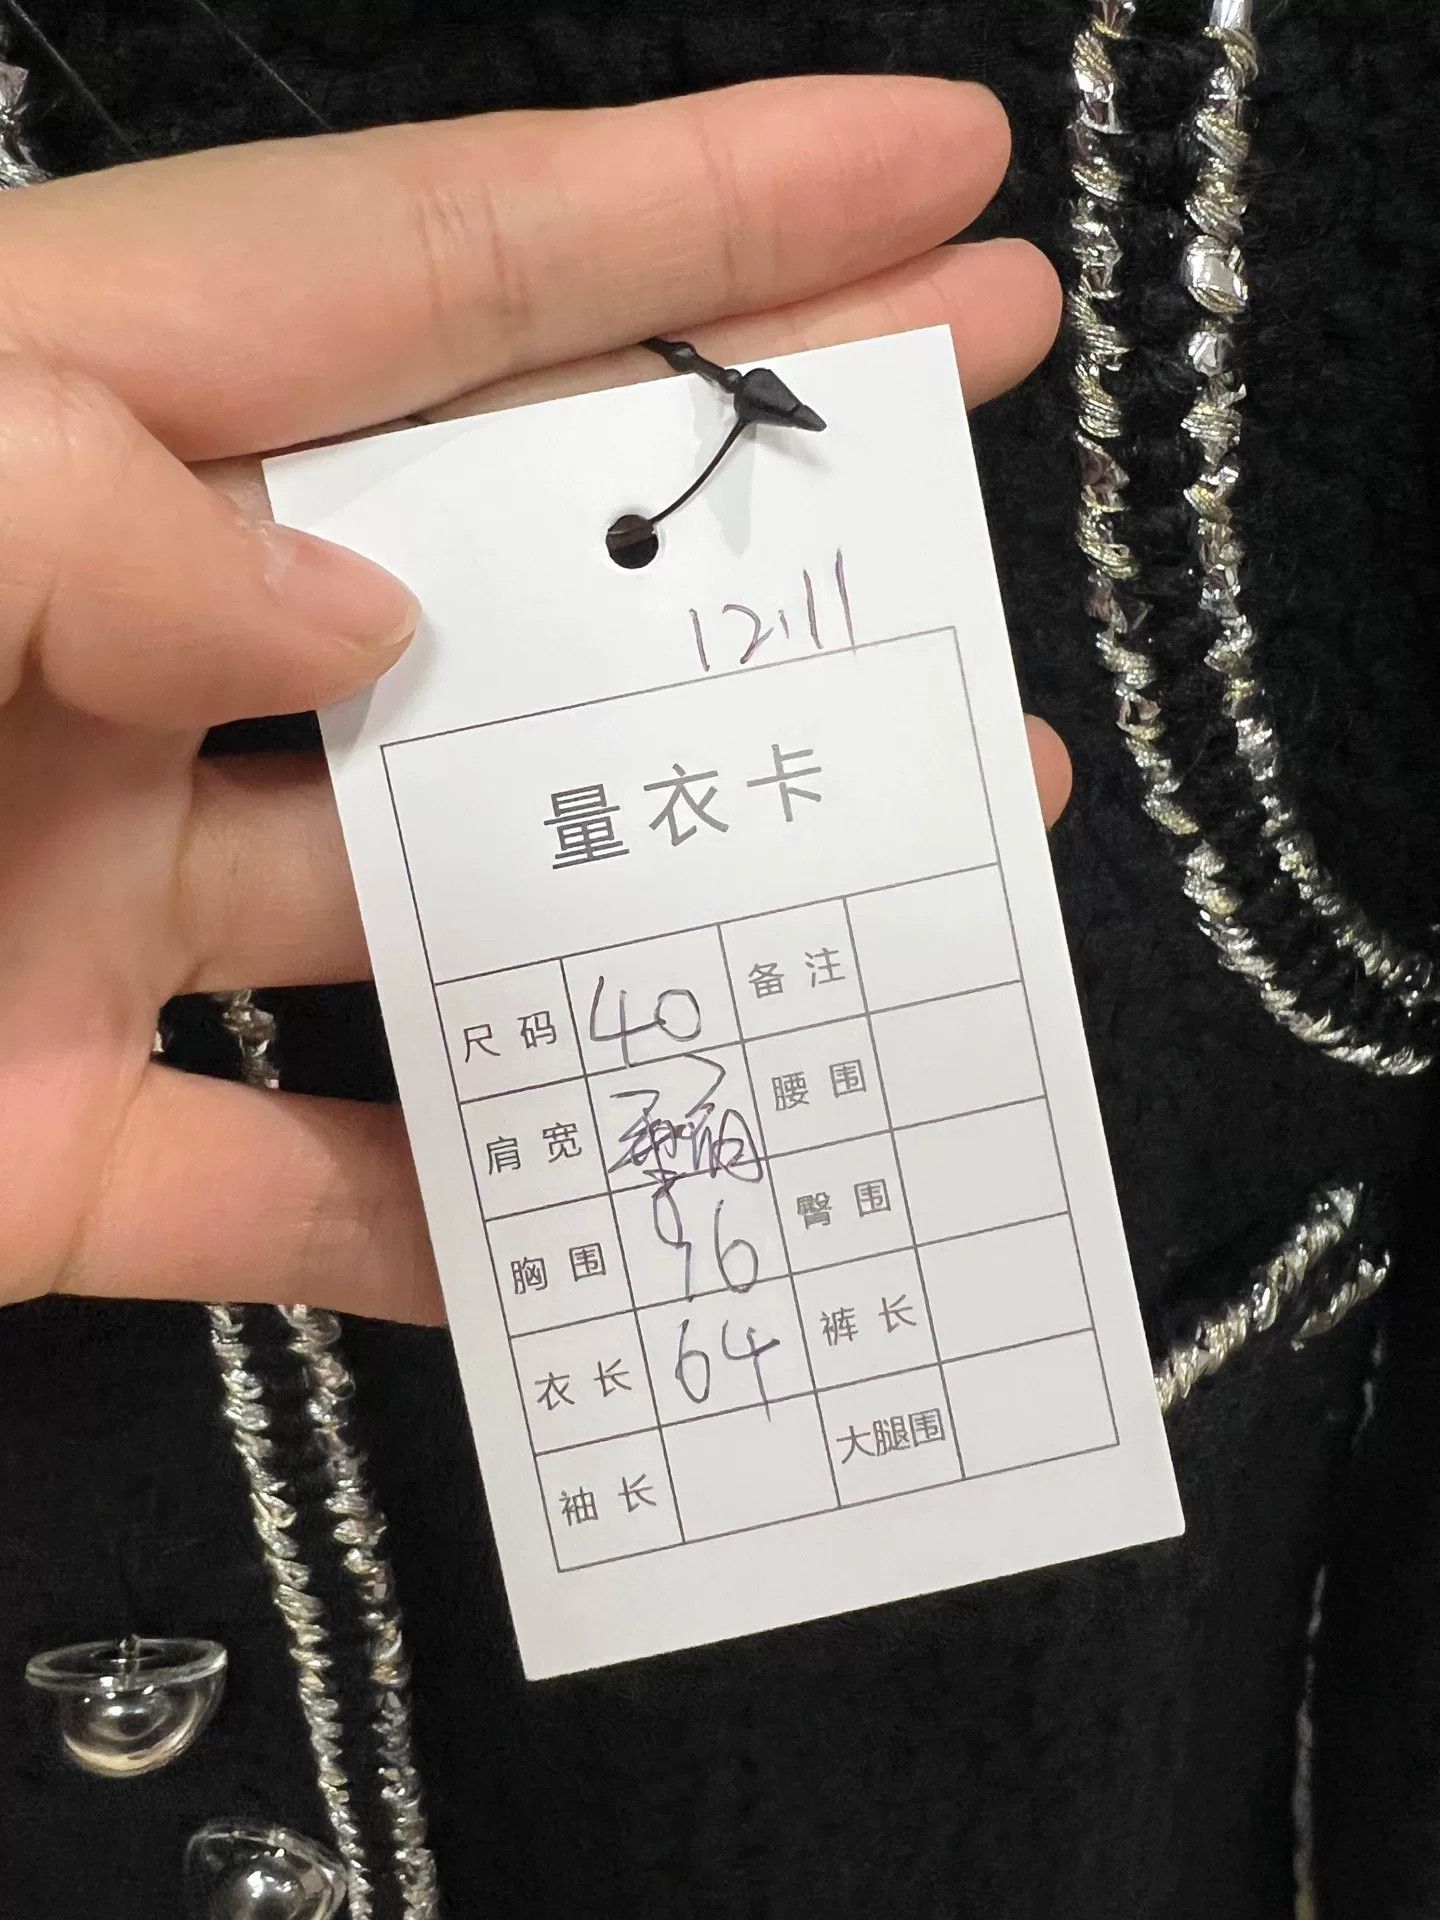 12.11
量衣卡
尺码 40 备注
肩宽 腰围
胸围 96 臀围
衣长 64 裤长
袖长 大腿围